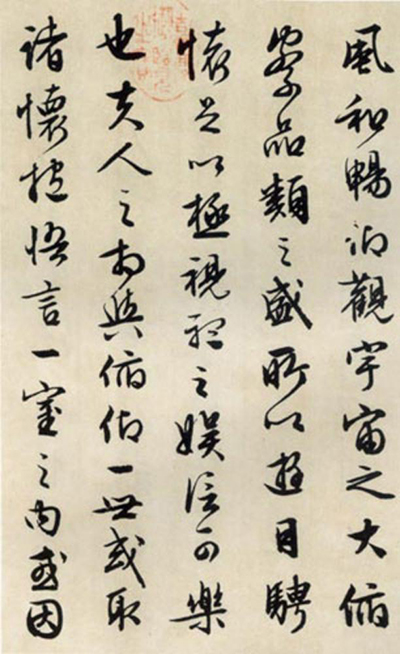 風和暢仰觀宇宙之大俯
察品類之盛所以遊目騁
懷足以極視聽之娛信可樂
也夫人之相與俯仰一世或取
諸懷抱悟言一室之內或因